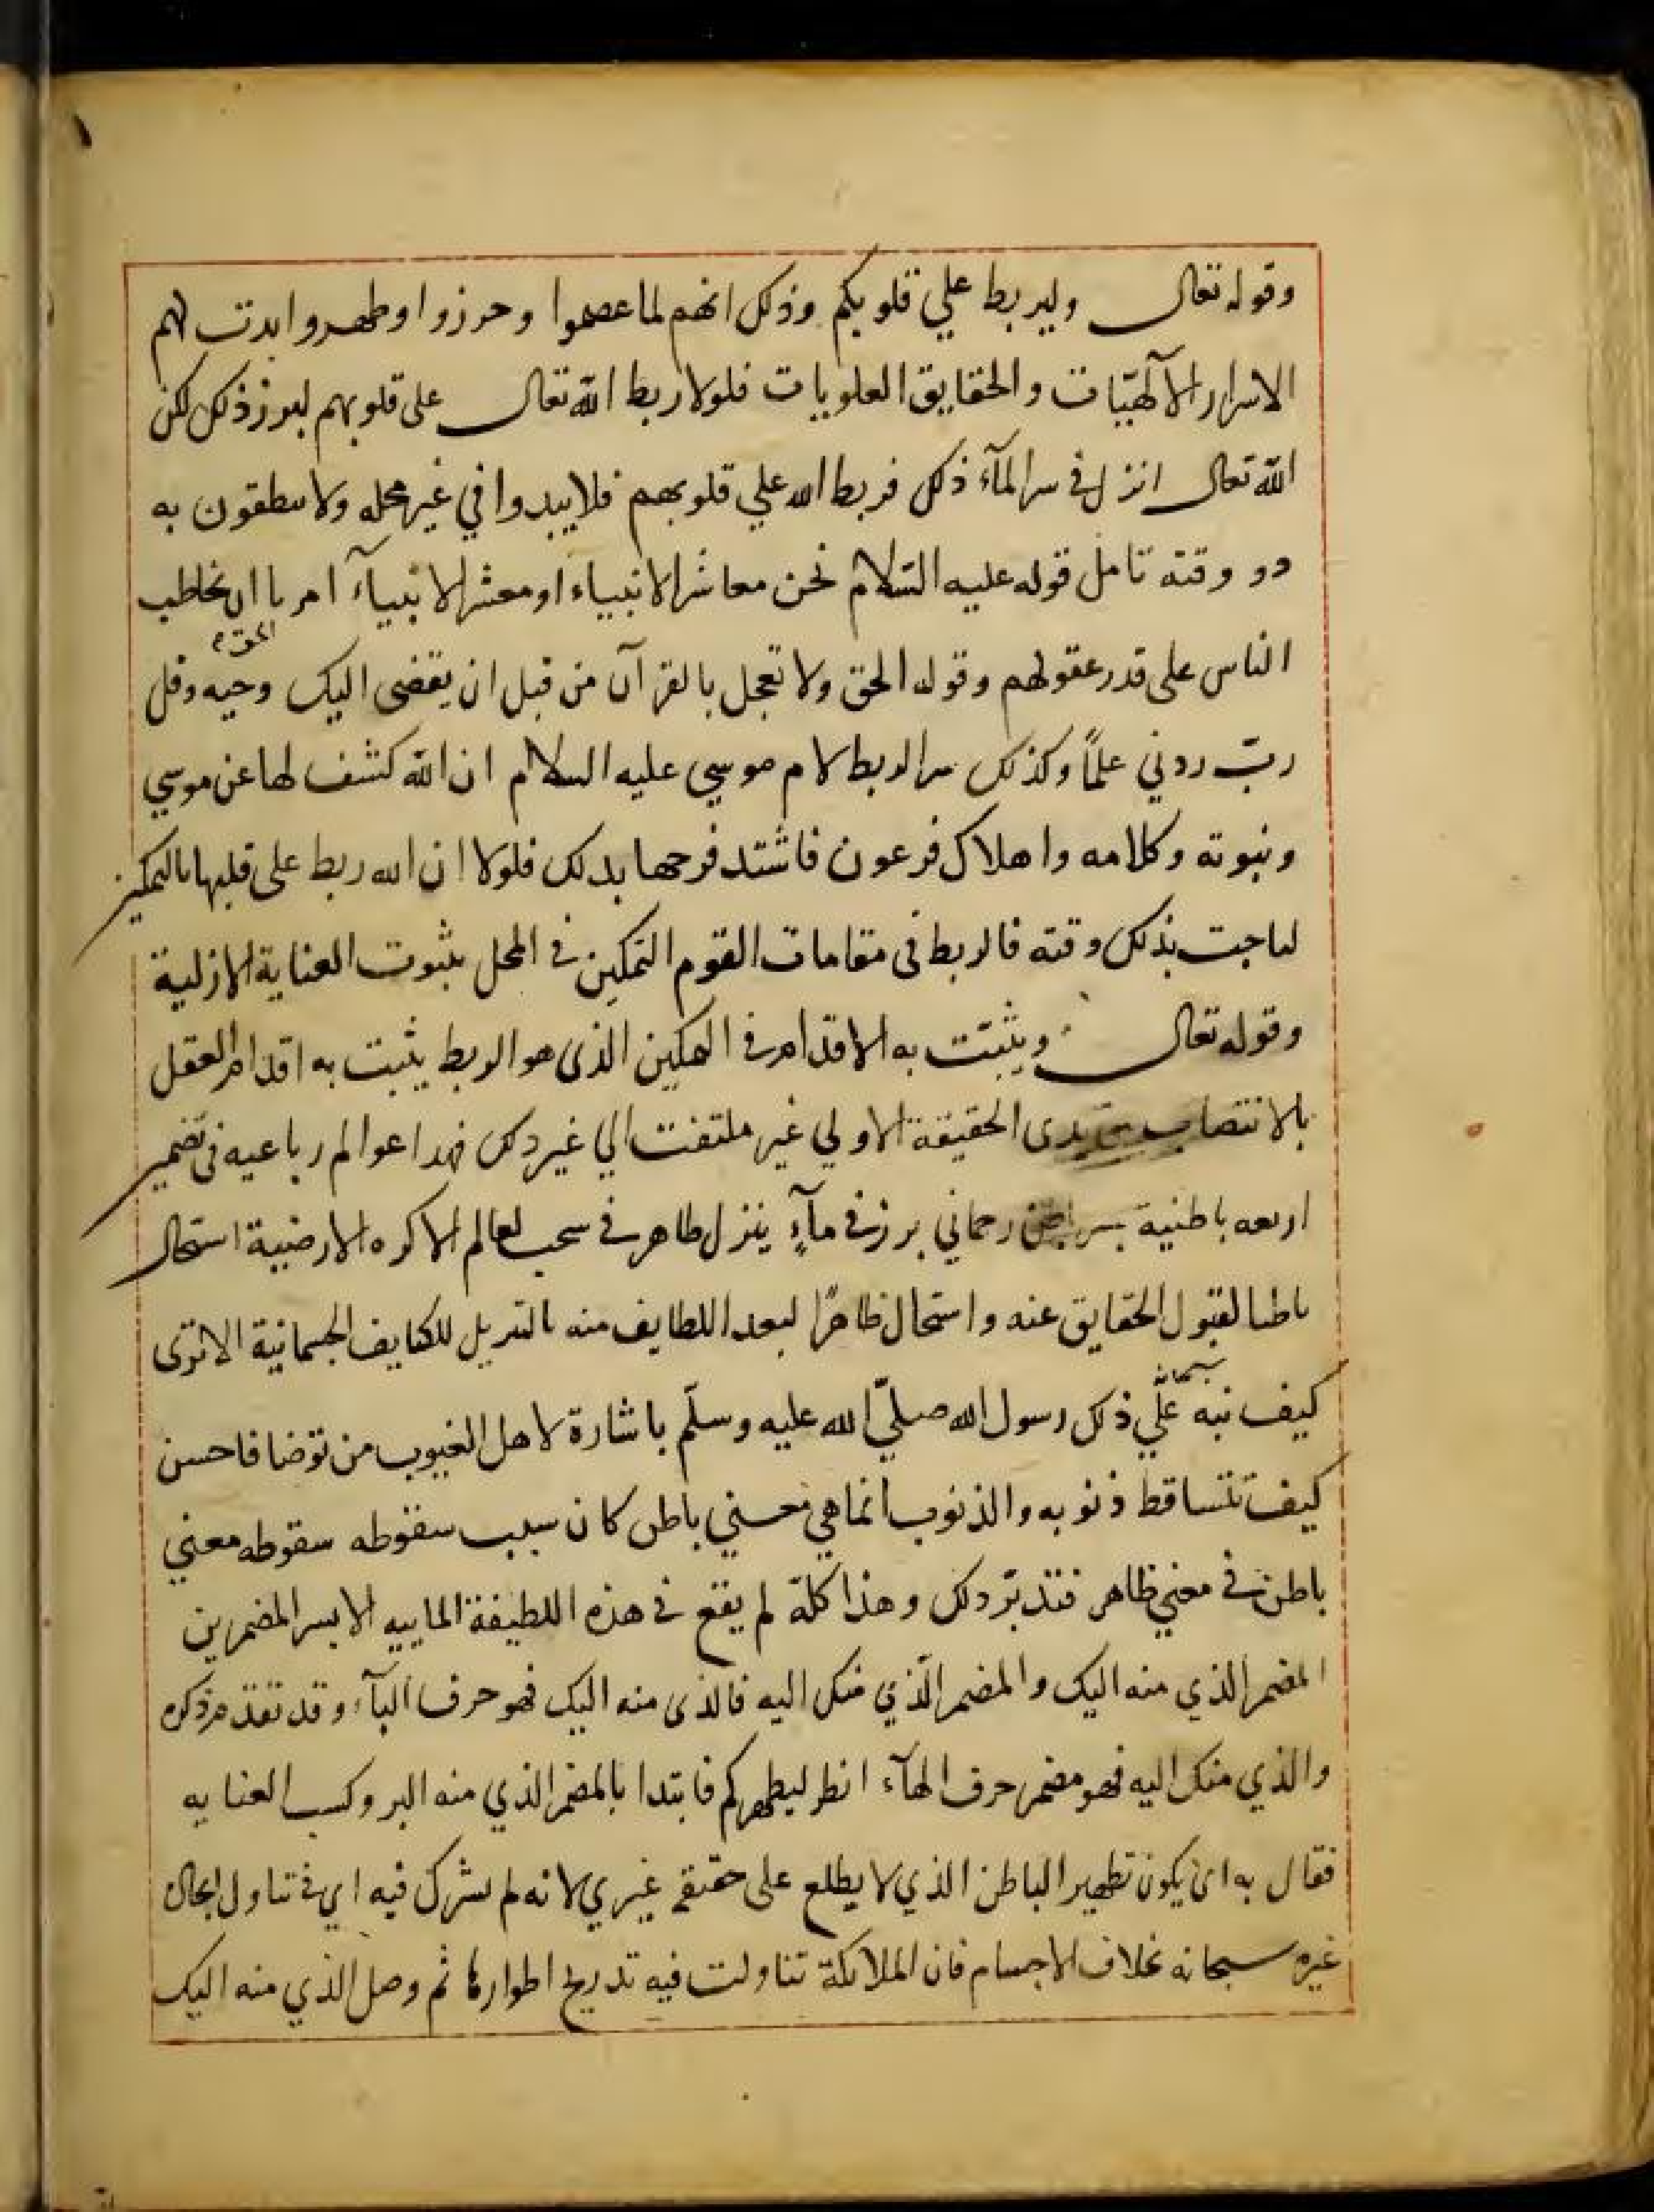 وقوله تعالى وليربط علي قلوبكم وذلك انهم لما عصموا وحرزوا وطهروا ابدت لهم
الاسرار الآلهيّات والحقايق العلويات فلولا ربط الله تعالى على قلوبهم لبرز ذلك لكن
الله تعالى انزل في سر المآء ذلك فربط الله علي قلوبهم فلا يبدوا في غير محله ولا ىنطقون به
دو وقته تامل قوله عليه السّلام نحن معاشر الانبياء او معشر الانبيآء امرىا ان نخاطب
الناس على قدر عقولهم وقوله الحق ولا تعجل بالقرآن من قبل ان يقضى اليك وحيه وقل
ربّ ردني علمًا وكذلك سر الربط لام موسي عليه السلام ان الله كشف لها عن موسي
ونبوته وكلامه واهلاك فرعون فاشتد فرحها بدلك فلولا ان الله ربط على قلبها بالتمكين
لباحت بذلك وقته فالربط فى مقامات القوم التمكين في المحل بثبوت العناية الازلية
وقوله تعالى ويثبّت به الاقدام في التمكين الذى هو الربط يثبت به اقدام العقل
بالانتصاب الحقيقة الاولي غير ملتفت الي غير دلك فهدا عوالم رباعيه فى تضمير
اربعه باطنية بسر باطن رحماني برز في مآءٍ ينزل طاهر في سحب لعالم الاكره الارضية استحال
باطنا لقبول الحقايق عنه واستحال ظاهرًا لبعد اللطايف منه بالتنزيل للكثايف الجسمانية الا ترى
كيف نبه علّي ذلك رسول الله صلّي الله عليه وسلّم باشارة لاهل الغيوب من توضا فاحسن
كيف تتساقط ذنوبه والذنوب انما هي معني باطن كان سبب سقوطه سقوطه معني
باطن في معني ظاهر فتدبّر دلك وهذا كلّه لم يقع في هذه اللطيفة الماييه الا بسر المضمرين
المضمر الذي منه اليك والمضمر الّذي منك اليه فالذى منه اليك فهو حرف البآء وقد تقدم ذكره
والذي منك اليه فهو مضمر حرف الهآء انظر ليطهركم فابتدا بالمضمر الذي منه البر وكسب العنايه
فقال به اى يكون تطهير الباطن الذي لا يطلع على حقيقته غيري لانه لم يشرك فيه اي في تناول ايجاده
غيره سبحانه بخلاف الاجسام فان الملائكة تناولت فيه تدريج اطوارها ثم وصل الذي منه اليك